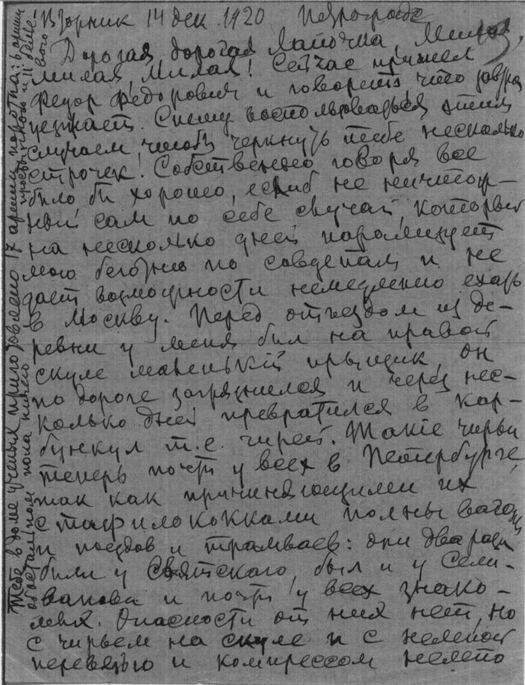 Вторник 14 дек. 1920 Петроград
Дорогая, дорогая Лапочка, Милая,
милая, милая! Сейчас пришел
Федор Федорович и говорит что завтра
уезжает. Спешу воспользоваться этим
случаем, чтобы черкнуть тебе несколько
строчек. Собственно говоря все
было бы хорошо, еслиб не ничтож-
ный сам по себе случай, который
на несколько дней парализует
мою беготню по совдепам и не
дает возможности немедленно ехать
в Москву. Перед отъездом из де-
ревни у меня был на правой
скуле маленький прыщик, он
по дороге загрязнился и через нес-
колько дней превратился в кар-
бункул т.е. чирей. Такие чирьи
теперь почти у всех в Петербурге,
так как причиняющими их
стафилококками полны вагоны
и поездов и трамваев: они два раза
были у Святского, был и у Сели-
ванова и почти у всех знако-
мых. Опасности от них нет, но
с чирьем на скуле и с нелепой
перевязью и компрессом нелепо
Тебе в доме ученых приготовлено 17 аршин полотна: 6 аршин